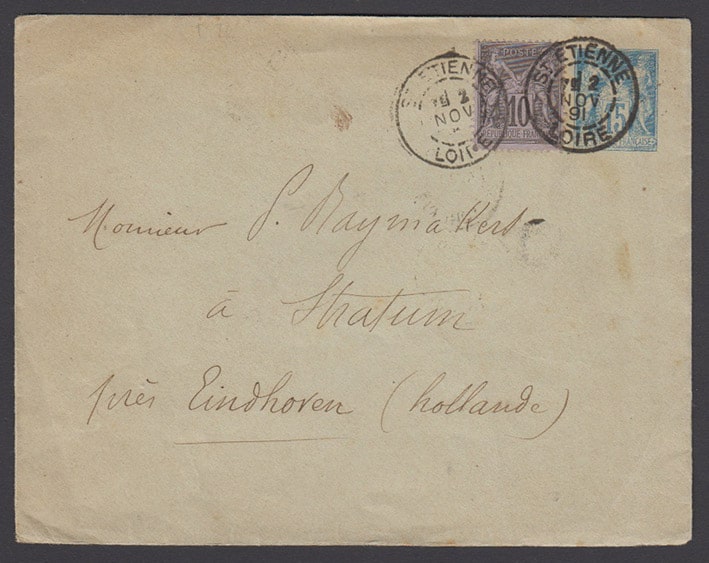 ST ETIENNE
2
NOV
LOIRE
10
REPUBLIQUE FRANC
ST ETIENNE
2
NOV
91
LOIRE
15
FRANCAISE
Monsieur P. Raymakers
à Stratum
près Eindhoven (hollande)